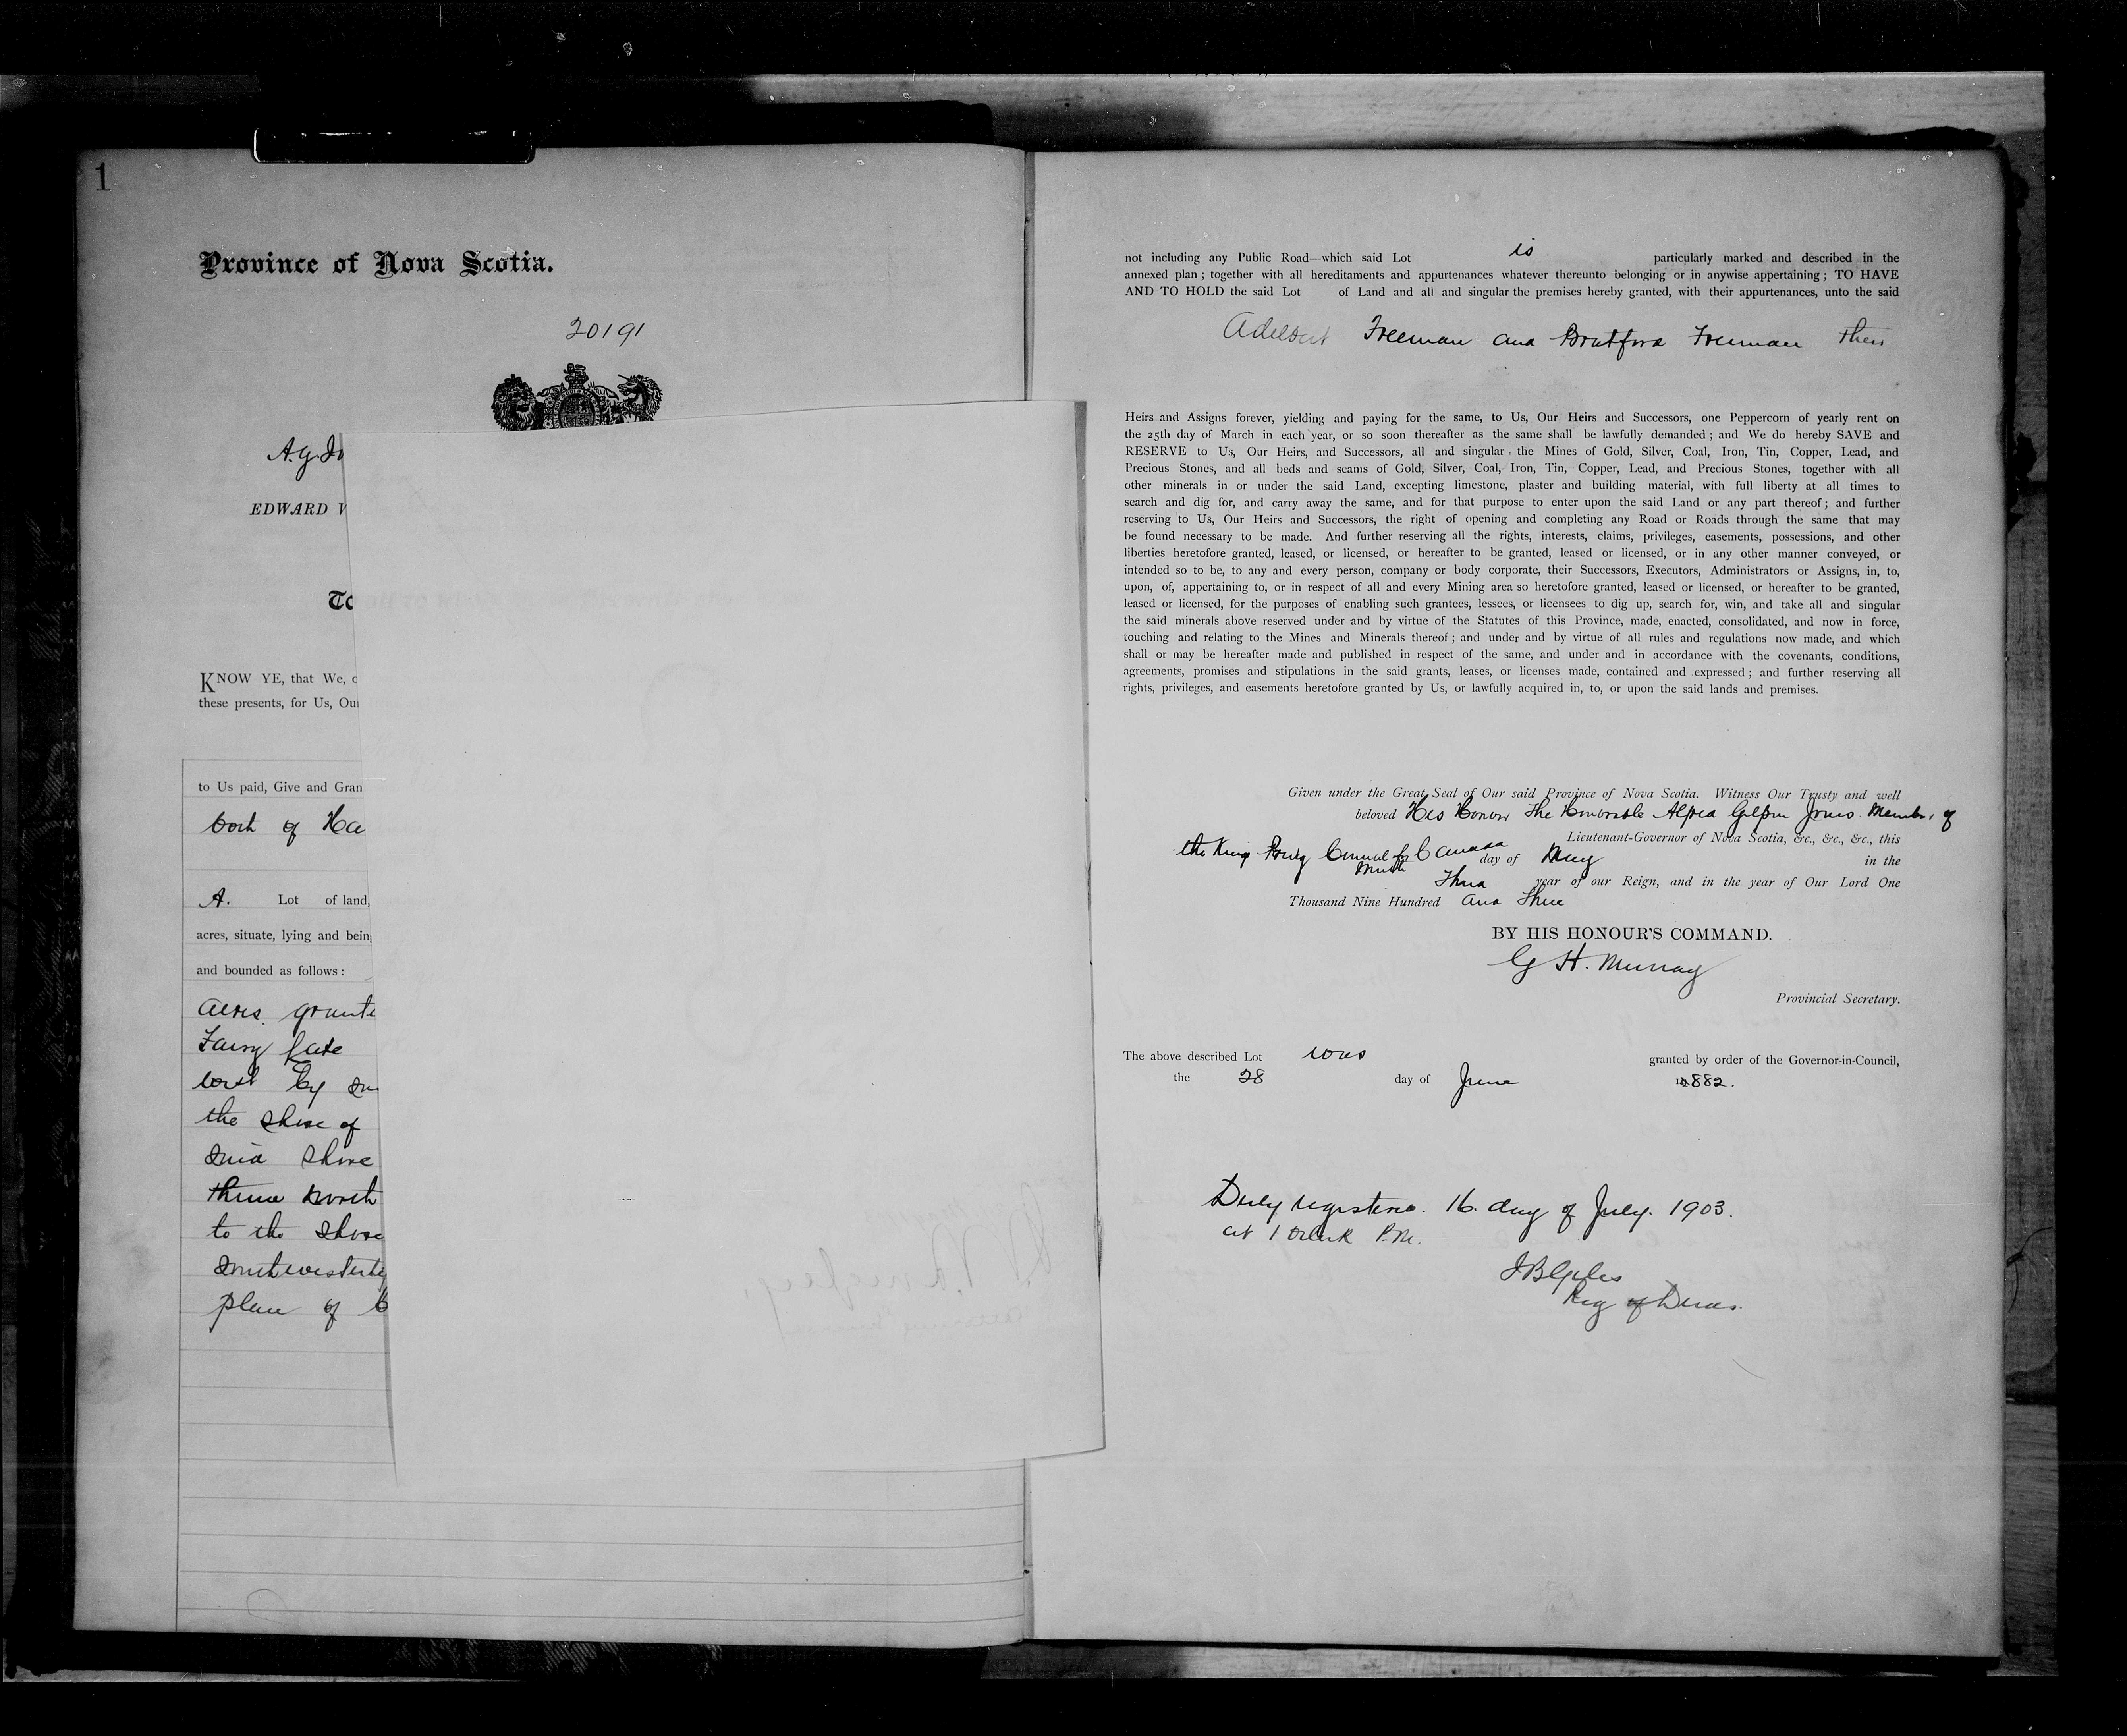 1
Province of Nova Scotia.
20191
A.G. Jo
EDWARD V
To
KNOW YE, that We, o
these presents, for Us, Our
to Us paid, Give and Gran
both of Ha
A. Lot of land,
acres, situate, lying and being
and bounded as follows:
acres grante
Fairy Lake
west by
the shore of
said shore
thence North
to the shore
Southwesterly
plan of
not including any Public Road—which said Lot is particularly marked and described in the
annexed plan; together with all hereditaments and appurtenances whatever thereunto belonging or in anywise appertaining; TO HAVE
AND TO HOLD the said Lot of Land and all and singular the premises hereby granted, with their appurtenances, unto the said
Adelbert Freeman and Bradford Freeman their
Heirs and Assigns forever, yielding and paying for the same, to Us, Our Heirs and Successors, one Peppercorn of yearly rent on
the 25th day of March in each year, or so soon thereafter as the same shall be lawfully demanded; and We do hereby SAVE and
RESERVE to Us, Our Heirs, and Successors, all and singular the Mines of Gold, Silver, Coal, Iron, Tin, Copper, Lead, and
Precious Stones, and all beds and seams of Gold, Silver, Coal, Iron, Tin, Copper, Lead, and Precious Stones, together with all
other minerals in or under the said Land, excepting limestone, plaster and building material, with full liberty at all times to
search and dig for, and carry away the same, and for that purpose to enter upon the said Land or any part thereof; and further
reserving to Us, Our Heirs and Successors, the right of opening and completing any Road or Roads through the same that may
be found necessary to be made. And further reserving all the rights, interests, claims, privileges, easements, possessions, and other
liberties heretofore granted, leased, or licensed, or hereafter to be granted, leased or licensed, or in any other manner conveyed, or
intended so to be, to any and every person, company or body corporate, their Successors, Executors, Administrators or Assigns, in, to,
upon, of, appertaining to, or in respect of all and every Mining area so heretofore granted, leased or licensed, or hereafter to be granted,
leased or licensed, for the purposes of enabling such grantees, lessees, or licensees to dig up, search for, win, and take all and singular
the said minerals above reserved under and by virtue of the Statutes of this Province, made, enacted, consolidated, and now in force,
touching and relating to the Mines and Minerals thereof; and under and by virtue of all rules and regulations now made, and which
shall or may be hereafter made and published in respect of the same, and under and in accordance with the covenants, conditions,
agreements, promises and stipulations in the said grants, leases, or licenses made, contained and expressed; and further reserving all
rights, privileges, and easements heretofore granted by Us, or lawfully acquired in, to, or upon the said lands and premises.
Given under the Great Seal of Our said Province of Nova Scotia. Witness Our Trusty and well
beloved His Honour The Honorable Alfred Gilpin Jones Member of
Lieutenant-Governor of Nova Scotia, &c., &c., &c., this
the King Privy Council for Canada
Ninth day of May in the
Third year of our Reign, and in the year of Our Lord One
Thousand Nine Hundred and Three
BY HIS HONOUR'S COMMAND.
G H. Murray
Provincial Secretary.
The above described Lot was granted by order of the Governor-in-Council,
the 28 day of June 1882.
Duly registered. 16. day of July. 1903.
at 1 oclock P.M.
Reg of Deeds.